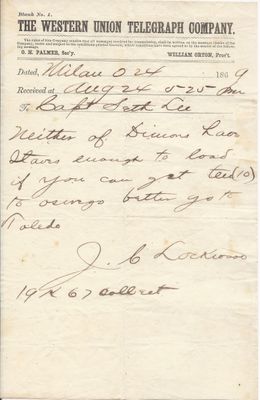 Blank No. 1.
THE WESTERN UNION TELEGRAPH COMPANY.
The rules of this Company require that all messages received for transmission, shall be written on the message blanks of the Company, under and subject to the conditions printed thereon, which conditions have been agreed to by the sender of the following message.
O. H. PALMER, Sec'y. WILLIAM ORTON, Pres't.
Dated, Milan O 24 1869
Received at Aug 24 5-25 pm
To Capt Seth Lee
Neither of Dimons has
Staves enough to load
if you can get ten (10)
to oswego better go to
Toledo
J. C Lockwood
19 67 collect